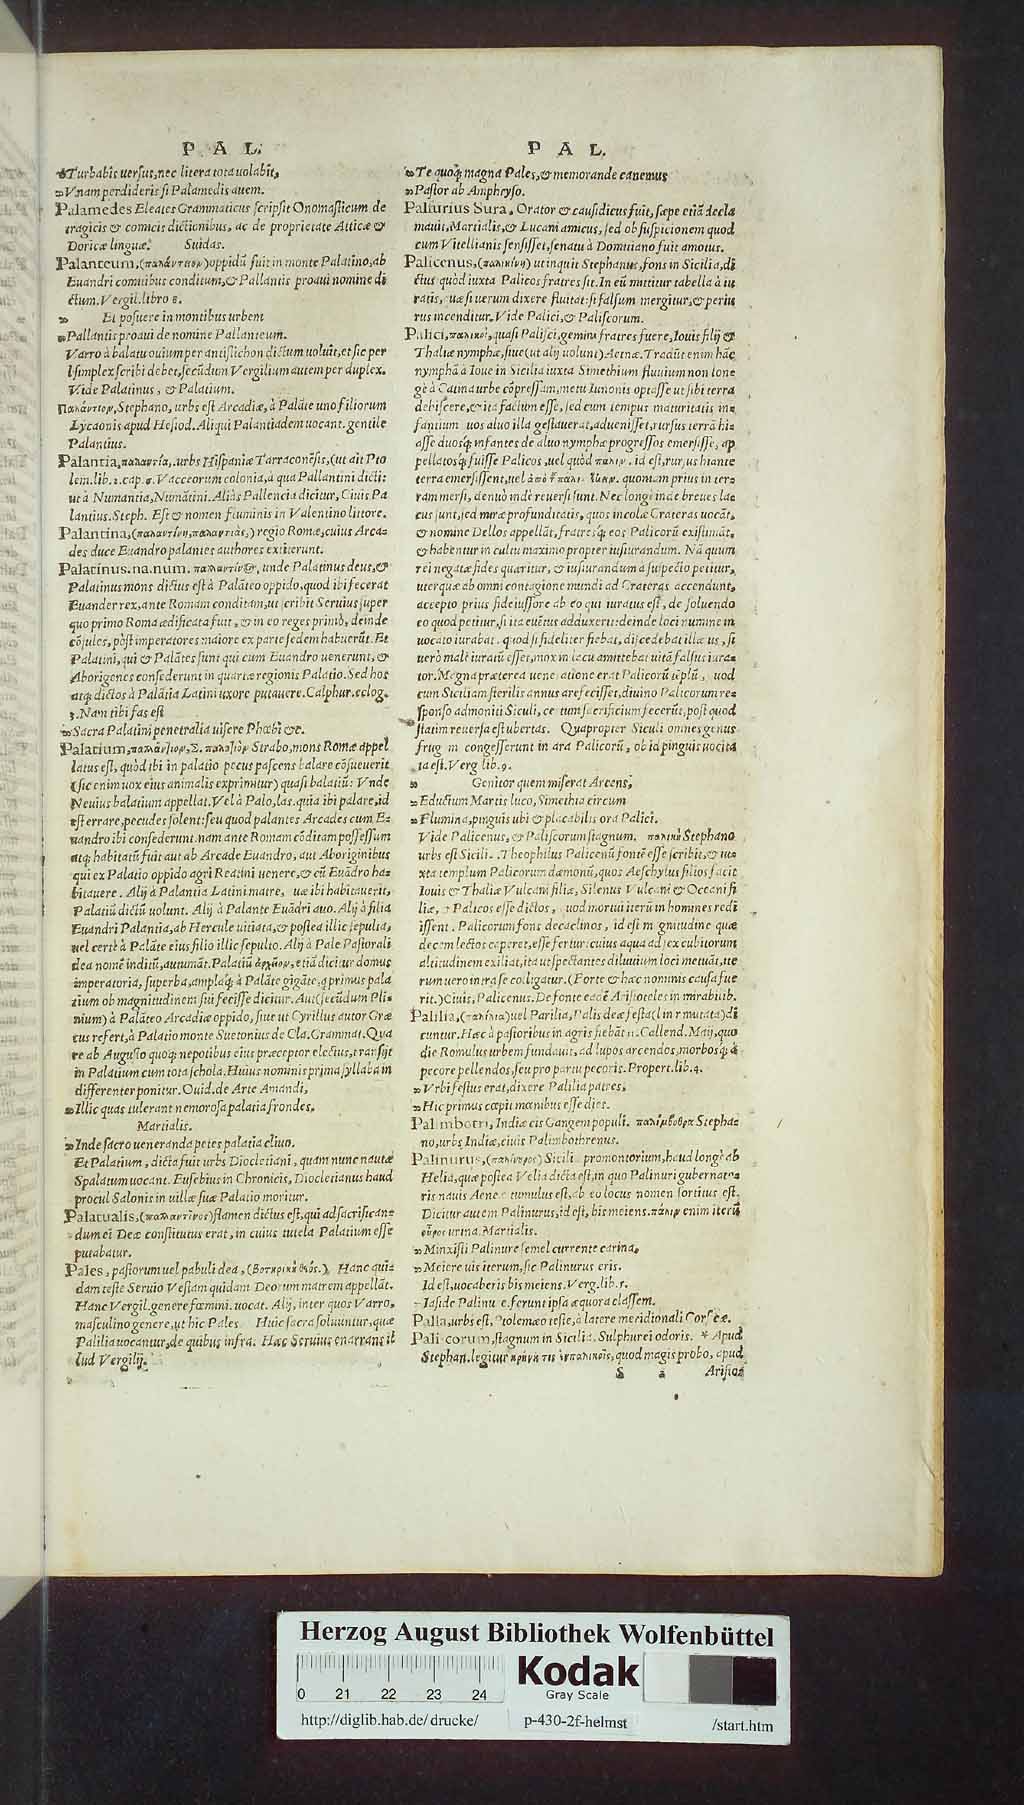 P A L.
Turbabis uersus, nec litera tota uolabit,
Vnam perdideris si Palamedis auem.
Palamedes Eleates Grammaticus scripsit Onomasticum de
tragicis & comicis dictionibus, ac de proprietate Atticæ &
Doricæ linguæ. Suidas.
Palanteum, (παλάντειον) oppidū fuit in monte Palatino, ab
Euandri comitibus conditum, & Pallantis proaui nomine di
ctum. Vergil. libro 8.
Et posuere in montibus urbem
Pallantis proaui de nomine Pallanteum.
Varro à balatu ouium per antistichon dictum uoluit, et sic per
l simplex scribi debet, secūdum Vergilium autem per duplex.
Vide Palatinus, & Palatium.
Παλάντιον, Stephano, urbs est Arcadiæ, à Palāte uno filiorum
Lycaonis apud Hesiod. Aliqui Palantiadem uocant. gentile
Palantius.
Palantia, παλαντία, urbs Hispaniæ Tarraconēsis, (ut ait Pto
lem. lib. 2. cap. 6. Vacceorum colonia, à qua Pallantini dicti:
ut à Numantia, Numātini. Aliàs Pallencia dicitur, Ciuis Pa
lantius. Steph. Est & nomen fluminis in Valentino littore.
Palantina, regio Romæ, cuius Arca-
des duce Euandro palantes authores extiterunt.
Palatinus. na. num. unde Palatinus deus, &
Palatinus mons dictus est à Palāteo oppido, quod ibi fecerat
Euander rex, ante Romam conditam, ut scribit Seruius super
quo primo Roma ædificata fuit, & in eo reges primò, deinde
cōsules, pòst imperatores maiore ex parte sedem habuerūt. Et
Palatini, qui & Palātes sunt qui cum Euandro uenerunt, &
Aborigenes consederunt in quarta regionis Palatio. Sed hos
atq; dictos à Palātia Latini uxore putauere. Calphur. eclog.
3. Nam tibi fas est
Sacra Palatini penetralia uisere Phœbi &c.
Palatium, Strabo, mons Romæ appel
latus est, quòd ibi in palatio pecus pascens balare cōsueuerit
(sic enim uox eius animalis exprimitur) quasi balatiū: Vnde
Neuius balatium appellat. Vel à Palo, las. quia ibi palare, id
est errare, pecudes solent: seu quod palantes Arcades cum E-
uandro ibi consederunt. nam ante Romam cōditam possessum
atq; habitatū fuit aut ab Arcade Euandro, aut Aboriginibus
qui ex Palatio oppido agri Reatini uenere, & cū Euādro ha-
bitauere. Alij à Palantia Latini matre, uæ ibi habitauerit,
Palatiū dictū uolunt. Alij à Palante Euādri auo. Alij à filia
Euandri Palantia, ab Hercule uitiata, & postea illic sepulta,
uel certè à Palāte eius filio illic sepulto. Alij à Pale Pastorali
dea nomē inditū, autumāt. Palatiū etiā dicitur domus
imperatoria, superba, amplaq; à Palāte gigāte, q primus pala
tium ob magnitudinem sui fecisse dicitur. Aut (secūdum Pli-
nium) à Palāteo Arcadiæ oppido, siue ut Cyrillus autor Græ
cus refert, à Palatio monte Suetonius de Cla. Grammat. Qua
re ab Augusto quoq; nepotibus eius præceptor electus, transijt
in Palatium cum tota schola. Huius nominis prima syllaba in
differenter ponitur. Ouid. de Arte Amandi,
Illic quas tulerant nemorosa palatia frondes,
Martialis.
Inde sacro ueneranda petes palatia cliuo.
Et Palatium, dicta fuit urbs Diocletiani, quam nunc nautæ
Spalatum uocant. Eusebius in Chronicis, Diocletianus haud
procul Salonis in uillæ suæ Palatio moritur.
Palatualis, flamen dictus est, qui ad sacrifican-
dum ei Deæ constitutus erat, in cuius tutela Palatium esse
putabatur.
Pales, pastorum uel pabuli dea, Hanc qui-
dam teste Seruio Vestam quidam Deorum matrem appellāt.
Hanc Vergil. genere fœmini. uocat. Alij, inter quos Varro,
masculino genere, ut hic Pales. Huic sacra soluuntur, quæ
Palilia uocantur, de quibus infra. Hæc Seruius enarrans il
lud Vergilij.
P A L.
Te quoq; magna Pales, & memorande canemus
Pastor ab Amphryso.
Palfurius Sura, Orator & causidicus fuit, sæpe etiā decla
mauit, Martialis, & Lucani amicus, sed ob suspicionem quod
cum Vitellianis sensisset, senatu à Domitiano fuit amotus.
Palicenus, ut inquit Stephanus, fons in Sicilia, di
ctus quòd iuxta Palicos fratres sit. In eū mittitur tabella à iu
ratis, uæ si uerum dixere fluitat: si falsum mergitur, & periu
rus incenditur. Vide Palici, & Paliscorum.
Palici, παλικοὶ, quasi Palisci, gemini fratres fuere, Iouis filij &
Thaliæ nymphæ, siue (ut alij uolunt) Aetnæ. Tradūt enim hāc
nymphā à Ioue in Sicilia iuxta Simethium fluuium non lon-
gè à Catina urbe cōpressam, metu Iunonis optasse ut sibi terra
dehisceret, & ita factum esse, sed cum tempus maturitatis in-
fantium uos aluo illa gestauerat, aduenisset, rursus terrā hi-
asse duosq; infantes de aluo nymphæ progressos emersisse, ap
pellatosq; fuisse Palicos, uel quòd πάλιν. id est, rursus hiante
terra emersissent, uel quoniam prius in ter-
ram mersi, denuò inde reuersi sunt. Nec longè inde breues la-
cus sunt, sed miræ profunditatis, quos incolæ Crateras uocāt,
& nomine Dellos appellāt, fratresq; eos Palicorū existimāt,
& habentur in cultu maximo propter iusiurandum. Nā quum
rei negatæ fides quæritur, & iusiurandum à suspecto petitur,
uterque ab omni contagione mundi ad Crateras accendunt,
accepto prius fideiussore ab eo qui iuratus est, de soluendo
eo quod petitur, si ita euētus adduxerit: deinde loci numine in
uocato iurabat. quod si fideliter fiebat, discedebat illæ us, si
uerò malè iuratū esset, mox in lacu amittebat uitā falsus iura-
tor. Magna præterea uene atione erat Palicorū tēplū, uod
cum Siciliam sterilis annus arefecisset, diuino Palicorum re-
sponso admoniti Siculi, ce tum sacrificium fecerūt, post quod
statim reuersa est ubertas. Quapropter Siculi omne genus
frug m congesserunt in ara Palicorū, ob id pinguis uocita
ta est. Verg lib. 9.
Genitor quem miserat Arcens,
Eductum Martis luco, Simethia circum
Flumina, pinguis ubi & placabilis ora Palici.
Vide Palicenus, & Paliscorum stagnum. Stephano
urbs est Sicili. Theophilus Palicenū fontē esse scribit, & iu-
xta templum Palicorum dæmonū, quos Aeschylus filios facit
Iouis & Thaliæ Vulcani filiæ, Silenus Vulcani & Oceani fi
liæ, & Palicos esse dictos, uod mortui iterū in homines redi
issent. Palicorum fons decaclinos, id est m gnitudine quæ
decem lectos caperet, esse fertur: cuius aqua ad sex cubitorum
altitudinem exiliat, ita ut spectantes diluuium loci metuāt, ite
rum uero intra se colligatur. (Forte & hæc nominis causa fue
rit.) Ciuis, Palicenus. De fonte eadē Aristoteles in mirabilib.
Palilia, (παλίλια) uel Parilia, Palis deæ festa (l in r mutata) di
cuntur. Hæc à pastoribus in agris fiebāt 11. Callend. Maij, quo
die Romulus urbem fundauit, ad lupos arcendos, morbosq; à
pecore pellendos, seu pro partu pecoris. Propert. lib. 4.
Vrbi festus erat, dixere Palilia patres,
Hic primus cœpit mœnibus esse dies.
Palimbotri, Indiæ cis Gangem populi. παλίμβοθρα Stepha-
no, urbs Indiæ, ciuis Palimbothrenus.
Palinurus, (παλίνουρος) Sicili promontorium, haud longè ab
Helia, quæ postea Velia dicta est, in quo Palinuri gubernat-
ris nauis Aene tumulus est, ab eo locus nomen sortitus est.
Dicitur autem Palinurus, id est, bis meiens. πάλιν enim iterū
οὖρος urina. Martialis.
Minxisti Palinure semel currente carina,
Meiere uis iterum, sic Palinurus eris.
Id est, uocaberis bis meiens. Verg. lib. 5.
Iaside Palinu e. ferunt ipsa æquora classem.
Palla, urbs est, Ptolemæo teste, à latere meridionali Corsicæ.
Pali corum, stagnum in Sicilia. Sulphurei odoris. * Apud
Stephan. legitur quod magis probo, apud
S 2 Aristot
Herzog August Bibliothek Wolfenbüttel
0 21 22 23 24
Kodak
Gray Scale
http://diglib.hab.de/drucke/ p-430-2f-helmst /start.htm